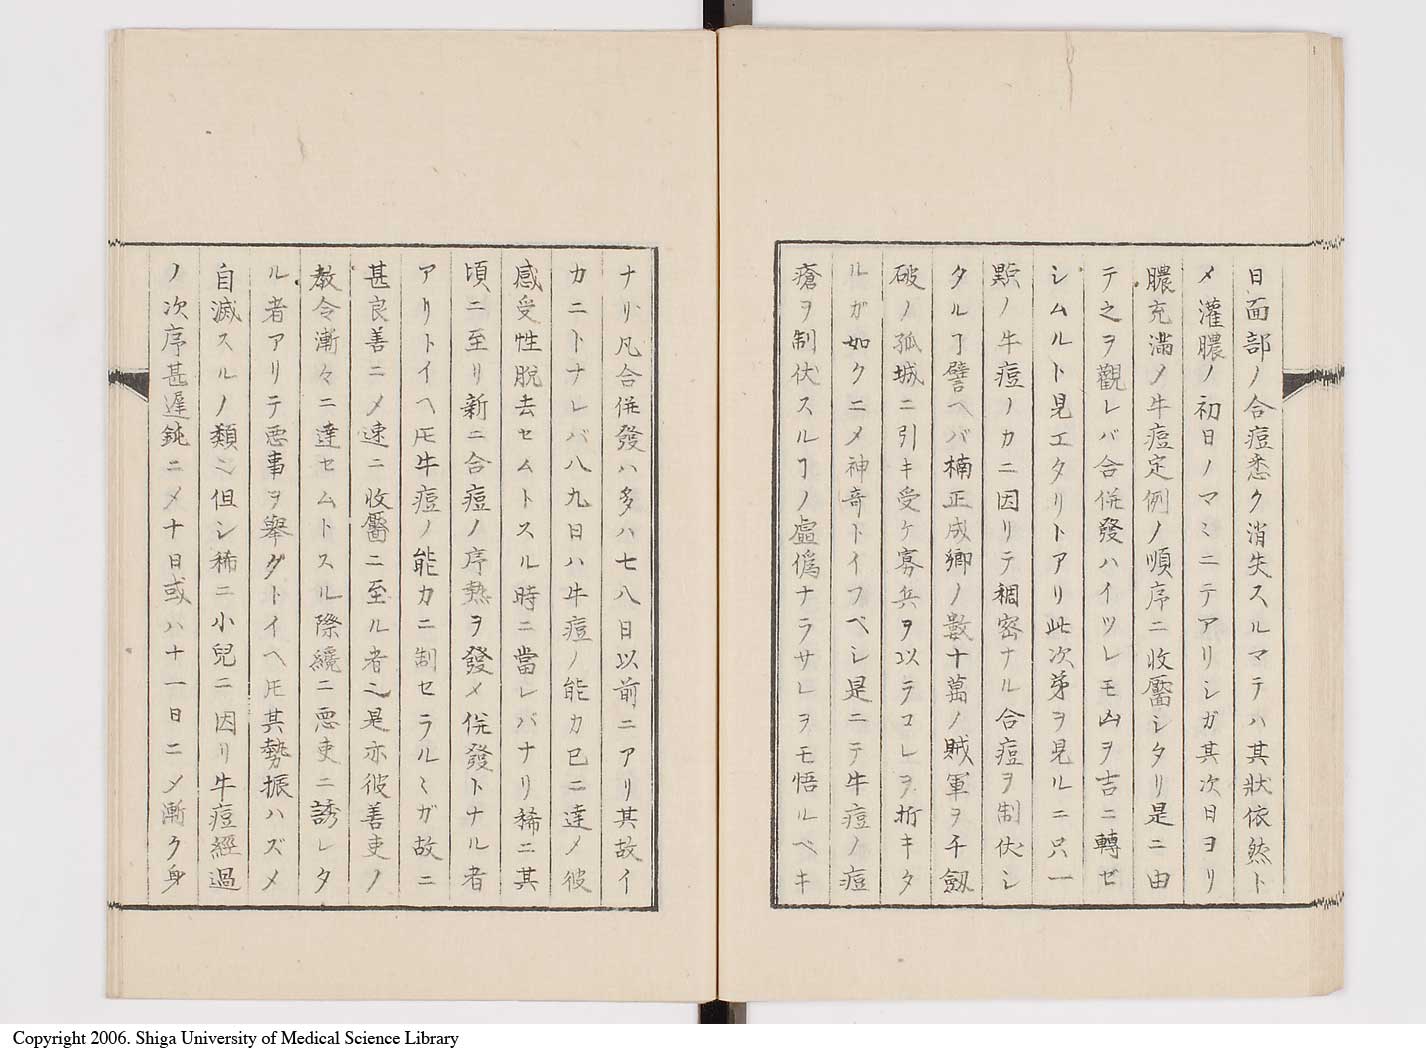 日面部ノ合痘悉ク消失スルマテハ其狀依然ト
メ灌膿ノ初日ノマミニテアリシガ其次日ヨリ
膿充滿ノ牛痘定例ノ順序ニ收靨シタリ是ニ由
テ之ヲ觀レバ合併發ハイツレモ凶ヲ吉ニ轉ゼ
シムルト見エタリトアリ此次第ヲ見ルニ只一
點ノ牛痘ノカニ因リテ稠密ナル合痘ヲ制伏シ
タルヿ譬ヘバ楠正成卿ノ數十萬ノ賊軍ヲ千劔
破ノ孤城ニ引キ受ケ寡兵ヲ以ラコレヲ折キタ
ルガ如クニメ神竒トイフベシ是ニテ牛痘ノ痘
瘡ヲ制伏スルヿノ虛僞ナラサレヲモ悟ルベキ
ナリ凡合併發ハ多ハ七八日以前ニアリ其故イ
カニトナレバ八九日ハ牛痘ノ能カ已ニ達メ彼
感受性脫去セムトスル時ニ當レバナリ稀ニ其
頃ニ至リ新ニ合痘ノ序熱ヲ發メ併發トナル者
アリトイヘ𪜈牛痘ノ能カニ制セラルミガ故ニ
甚良善ニメ速ニ收靨ニ至ル者之是亦彼善吏ノ
敎令漸々ニ達セムトスル際纔ニ惡吏ニ誘レタ
ル者アリテ惡事ヲ擧グトイヘ𪜈其勢振ハズメ
自滅スルノ類ミ但シ稀ニ小兒ニ因リ牛痘經過
ノ次序甚遲鈍ニメ十日或ハ十一日ニメ漸ク身
Copyright 2006. Shiga University of Medical Science Library